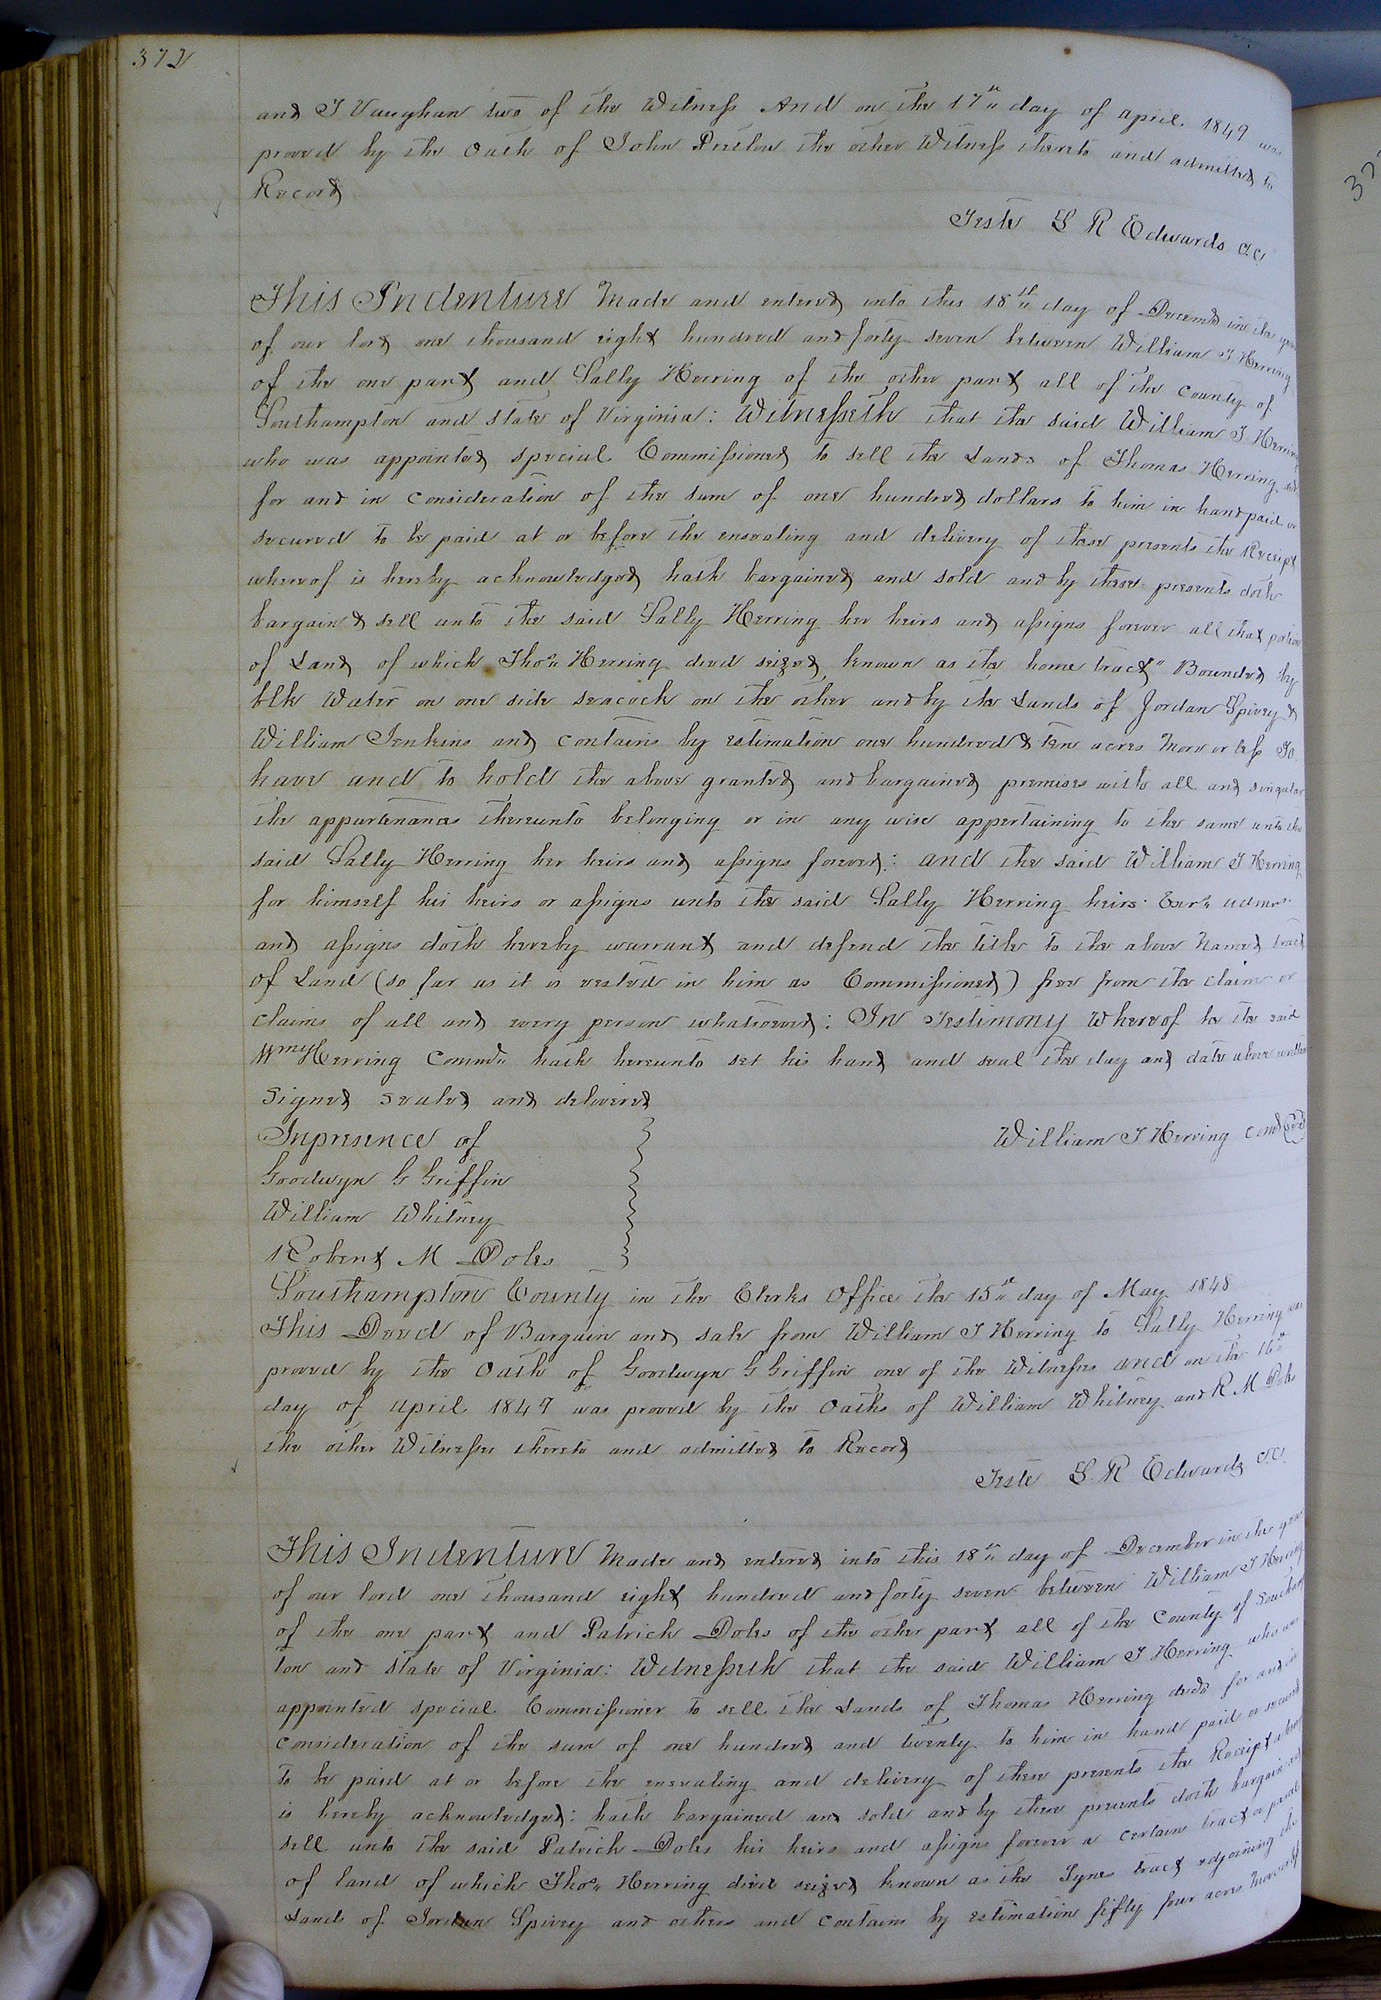 372
and J Vaughan two of the Witness And on the 17th day of april 1849 was
proved by the Oath of John Pretlow the other Witness thereto and admitted to
Record
Teste L R Edwards C.C.
This Indenture Made and entered into this 18th day of Decemb in the year
of our lord one thousand eight hundred and forty seven between William J Herring
of the one part and Sally Herring of the other part all of the County of
Southampton and state of Virginia: Witnesseth that the said William J Herring
who was appointed special Commissioner to sell the Lands of Thomas Herring
for and in Consideration of the sum of one hundred dollars to him in hand paid or
secured to be paid at or before the ensealing and delivery of these presents the Receipt
whereof is hereby acknowledged hath bargained and sold and by these presents doth
bargain & sell unto the said Sally Herring her heirs and assigns forever all that portion
of Land of which Thos Herring died seized known as the home tract" Bounded by
blk Water on one side seacock on the other and by the Lands of Jordan Spivey &
William Jenkins and contains by estimation one hundred & ten acres More or less To
have and to hold the above granted and bargained premises with all and singular
the appurtenances thereunto belonging or in any wise appertaining to the same unto the
said Sally Herring her heirs and assigns forever: and the said William J Herring
for himself his heirs or assigns unto the said Sally Herring heirs Exrs admrs
and assigns doth hereby warrant and defend the title to the above Named tract
of Land (so far as it is vested in him as Commissioner) free from the claim or
claims of all and every person whatsoever: In Testimony Whereof he the said
Wm J Herring Commr hath hereunto set his hand and seal the day and date above written
Signed Sealed and delivered
Inpresence of
William J Herring Com
Goodwyn G Griffin
William Whitney
Robert M Doles
Southampton County in the Clerks Office the 15th day of May 1848
This Deed of Bargain and sale from William J Herring to Sally Herring was
proved by the Oath of Goodwyn G Griffin one of the Witnesses and on the 16th
day of April 1849 was proved by the Oaths of William Whitney and R M Doles
the other Witnesses thereto and admitted to Record
Teste L. R Edwards C.C.
This Indenture Made and entered into this 18th day of December in the year
of our lord one thousand eight hundred and forty seven between William J Herring
of the one part and Patrick Doles of the other part all of the County of Southamp
ton and State of Virginia: Witnesseth that the said William J Herring who was
appointed special Commissioner to sell the Lands of Thomas Herring decd for and in
consideration of the sum of one hundred and twenty to him in hand paid or secured
to be paid at or before the ensealing and delivery of these presents the Receipt whereof
is hereby acknowledged: hath bargained and sold and by these presents doth bargain and
sell unto the said Patrick Doles his heirs and assigns forever a certain tract or parcel
of land of which Thos Herring died seized known as the Synes tract adjoining the
Lands of Jordan Spivey and others and contains by estimation fifty four acres More or less